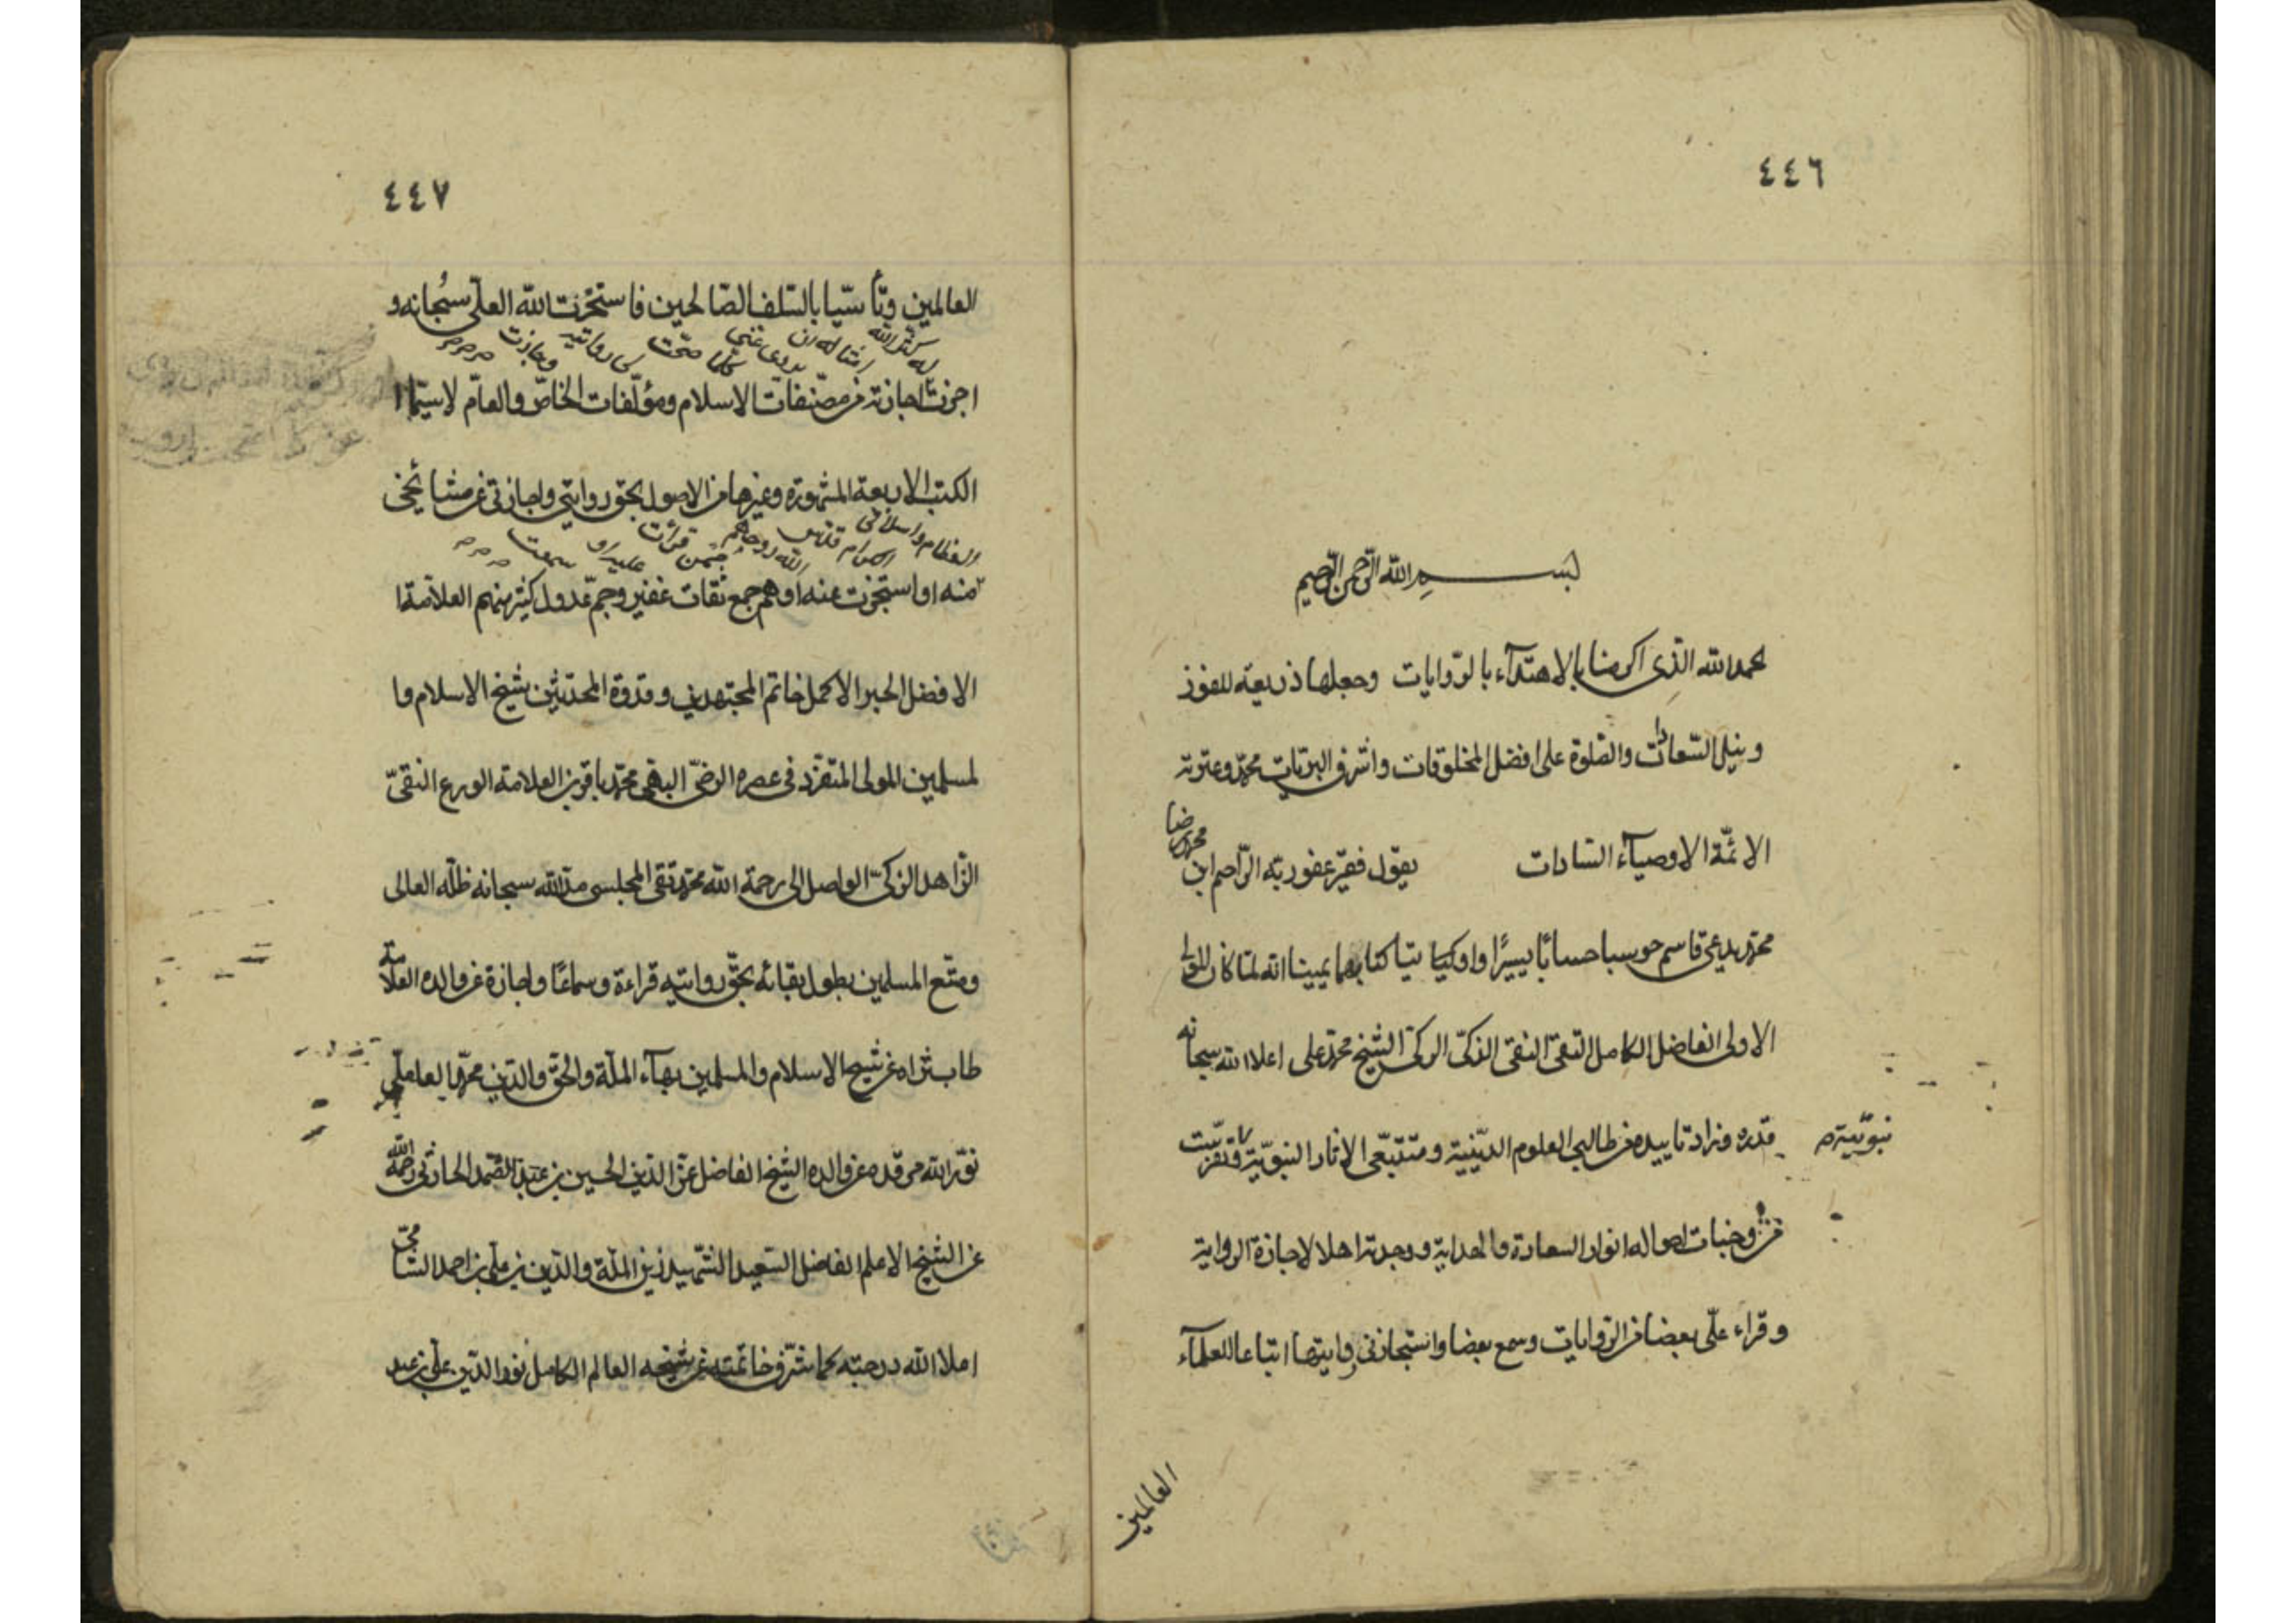 ٤٤٦
بسم الله الرحمن الرحيم
الحمد لله الذى اكرمنا بالاهتدآء بالروايات وجعلها ذريعة للفوز
ونيل السّعادات والصّلوة على افضل المخلوقات واشرف البريّات محمّد وعترته
الائمّة الاوصيآء السّادات يقول فقير عفو ربّه الرّاحم ابن محمد رضا
محمّد يدعى قاسم حوسبا حسابًا يسيرًا واوتيا كتابهما يمينا انه لمّا كان المولى
الاولى الفاضل الكامل التقىّ النقى الذكىّ الزكىّ الشيخ محمّد على اعلا الله سبحانه
قدره وزاد تاييده من طالبى العلوم الدّينية ومتتبّعى الاثار النبويّة وتفرّست
نبويّته م
من وجنات احواله انوار السعادة والهداية ووجدته اهلا لاجازة الرواية
وقراء علىّ بعضا من الرّوايات وسمع بعضا واستجازنى روايتها اتباعا للعلمآء
العالمين
٤٤٧
العالمين وتأسّيا بالسّلف الصّالحين فاستخرت الله العلّى سبحانه و
اجزت له كثر الله امثاله ان يروى عنى كلما صحّت لى روايته وجازت
اجازته من مصنّفات الاسلام ومؤلّفات الخاصّ والعامّ لاسيّما ا
الكتب الاربعة المشهورة وغيرها من الاصول بحق روايتى واجازتى عن مشائخى
العظام واسلافى الكرام قدّس الله روحهم ممّن قرأت عليه او سمعت
منه او استجزت عنه وهم جمع ثقات غفير وجمّ عدول كثير منهم العلّامة ا
الافضل الحبر الاكمل خاتم المجتهدين وقدوة المحدّثين شيخ الاسلام وا
لمسلمين المولى المتفرّد فى عصره الرضىّ البهى محمّد باقر بن العلامة الورع النقىّ
الزّاهد الزكىّ الواصل الى رحمة الله محمّد تقى المجلسى مدّ الله سبحانه ظلّه العالى
ومتّع المسلمين بطول بقائه بحقّ روايته قراءة وسماعًا واجازة عن والده العلّامة
طاب ثراه عن شيخ الاسلام والمسلمين بهآء الملّة والحقّ والدّين محمّد العاملّى
نوّر الله مرقده عن والده الشيخ الفاضل عزّ الدّين الحسين بن عبد الصّمد الحارثى رحمه الله
عن الشيخ الاعلم الفاضل السّعيد الشّهيد زين الملّة والدّين بن على بن احمد الشامىّ
اعلا الله درجته كما شرّف خاتمته عن شيخه العالم الكامل نور الدّين على بن عبد